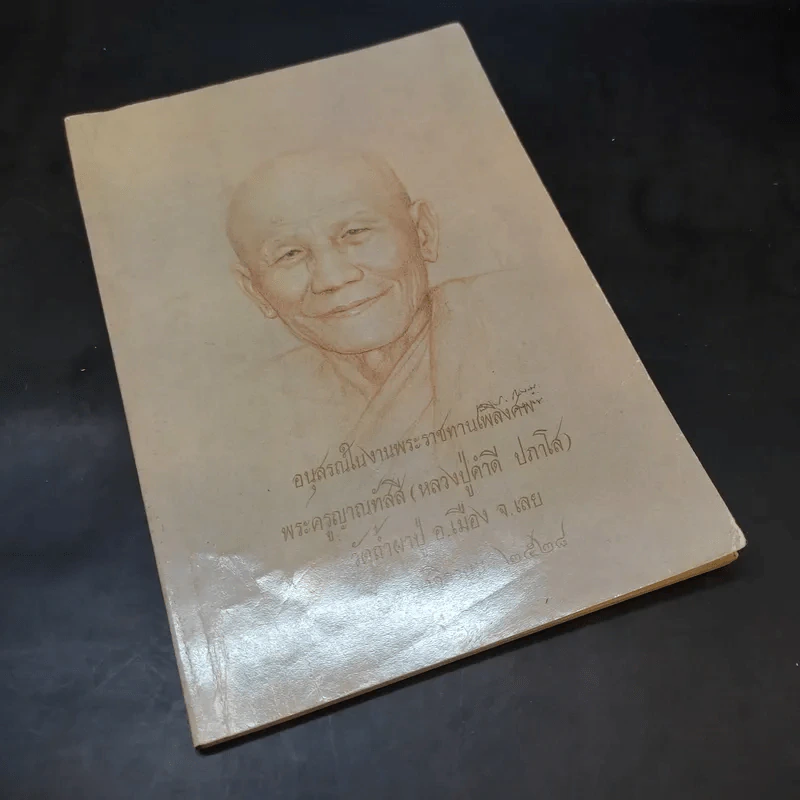 อนุสรณ์ในงานพระราชทานเพลิงศพ
พระครูญาณทัสสี (หลวงปู่คำดี ปภาโส)
วัดถ้ำผาปู่ อ.เมือง จ.เลย
๒๕๒๘